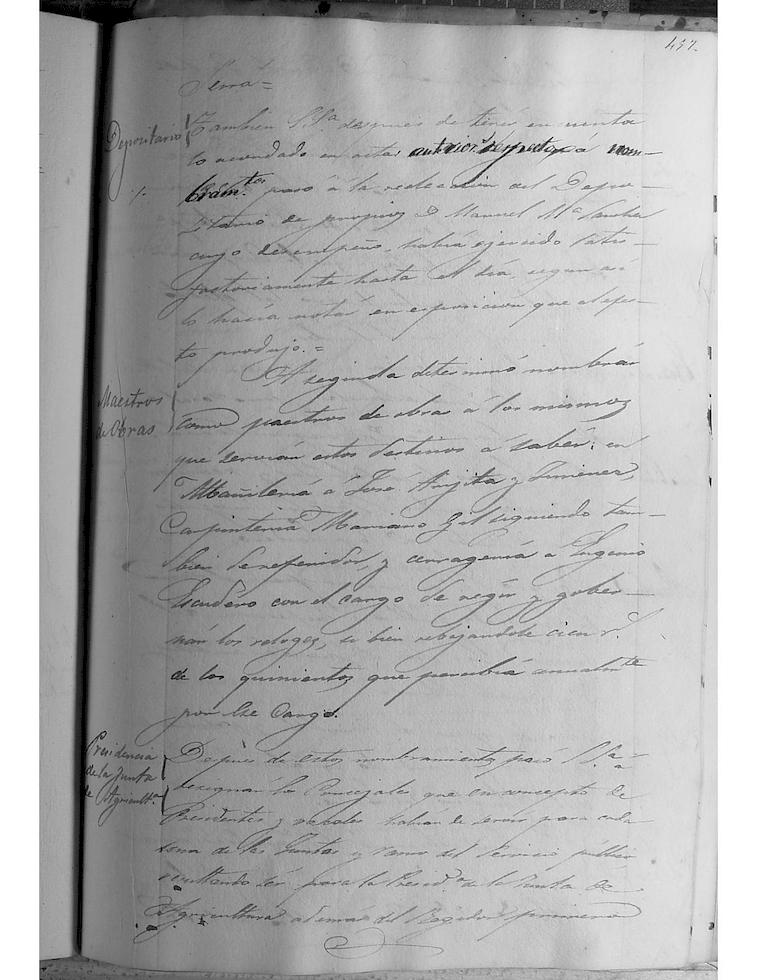 437.
Serra=
Depositario
Tambien S.Sa. despues de tener en cuenta
lo acordado en actas anterior respecto á nom-
bram.tos pasó á la reeleccion del Depo-
sitario de propios D. Manuel Ma.
cuyo desempeño había ejercido satis-
factoriamente hasta el dia, segun asi
lo hacía notar en esposicion que al efec-
to produjo.=
Maestros
de Obras
A seguida determinó nombrar
como maestros de obras á los mismos
que servian estos destinos á saber: en
Albañilería á José y Jimenez,
Carpintería Mariano Gil siguiendo tam-
bien de y cerragería á Eugenio
Escudero con el cargo de regir y gober-
nar los reloges, si bien rebajandole cien r.s
de los quinientos que percibía anualm.te
por ese Cargo.
Presidencia
de la Junta
de Agricult.a
Despues de estos nombramientos pasó S.Sa. á
designar los Concejales que en concepto de
Presidentes y vocales habian de servir para cada
una de las Juntas y ramo del servicio público
resultando ser para la Presid.a de la Junta de
Agricultura además del Regidor primero